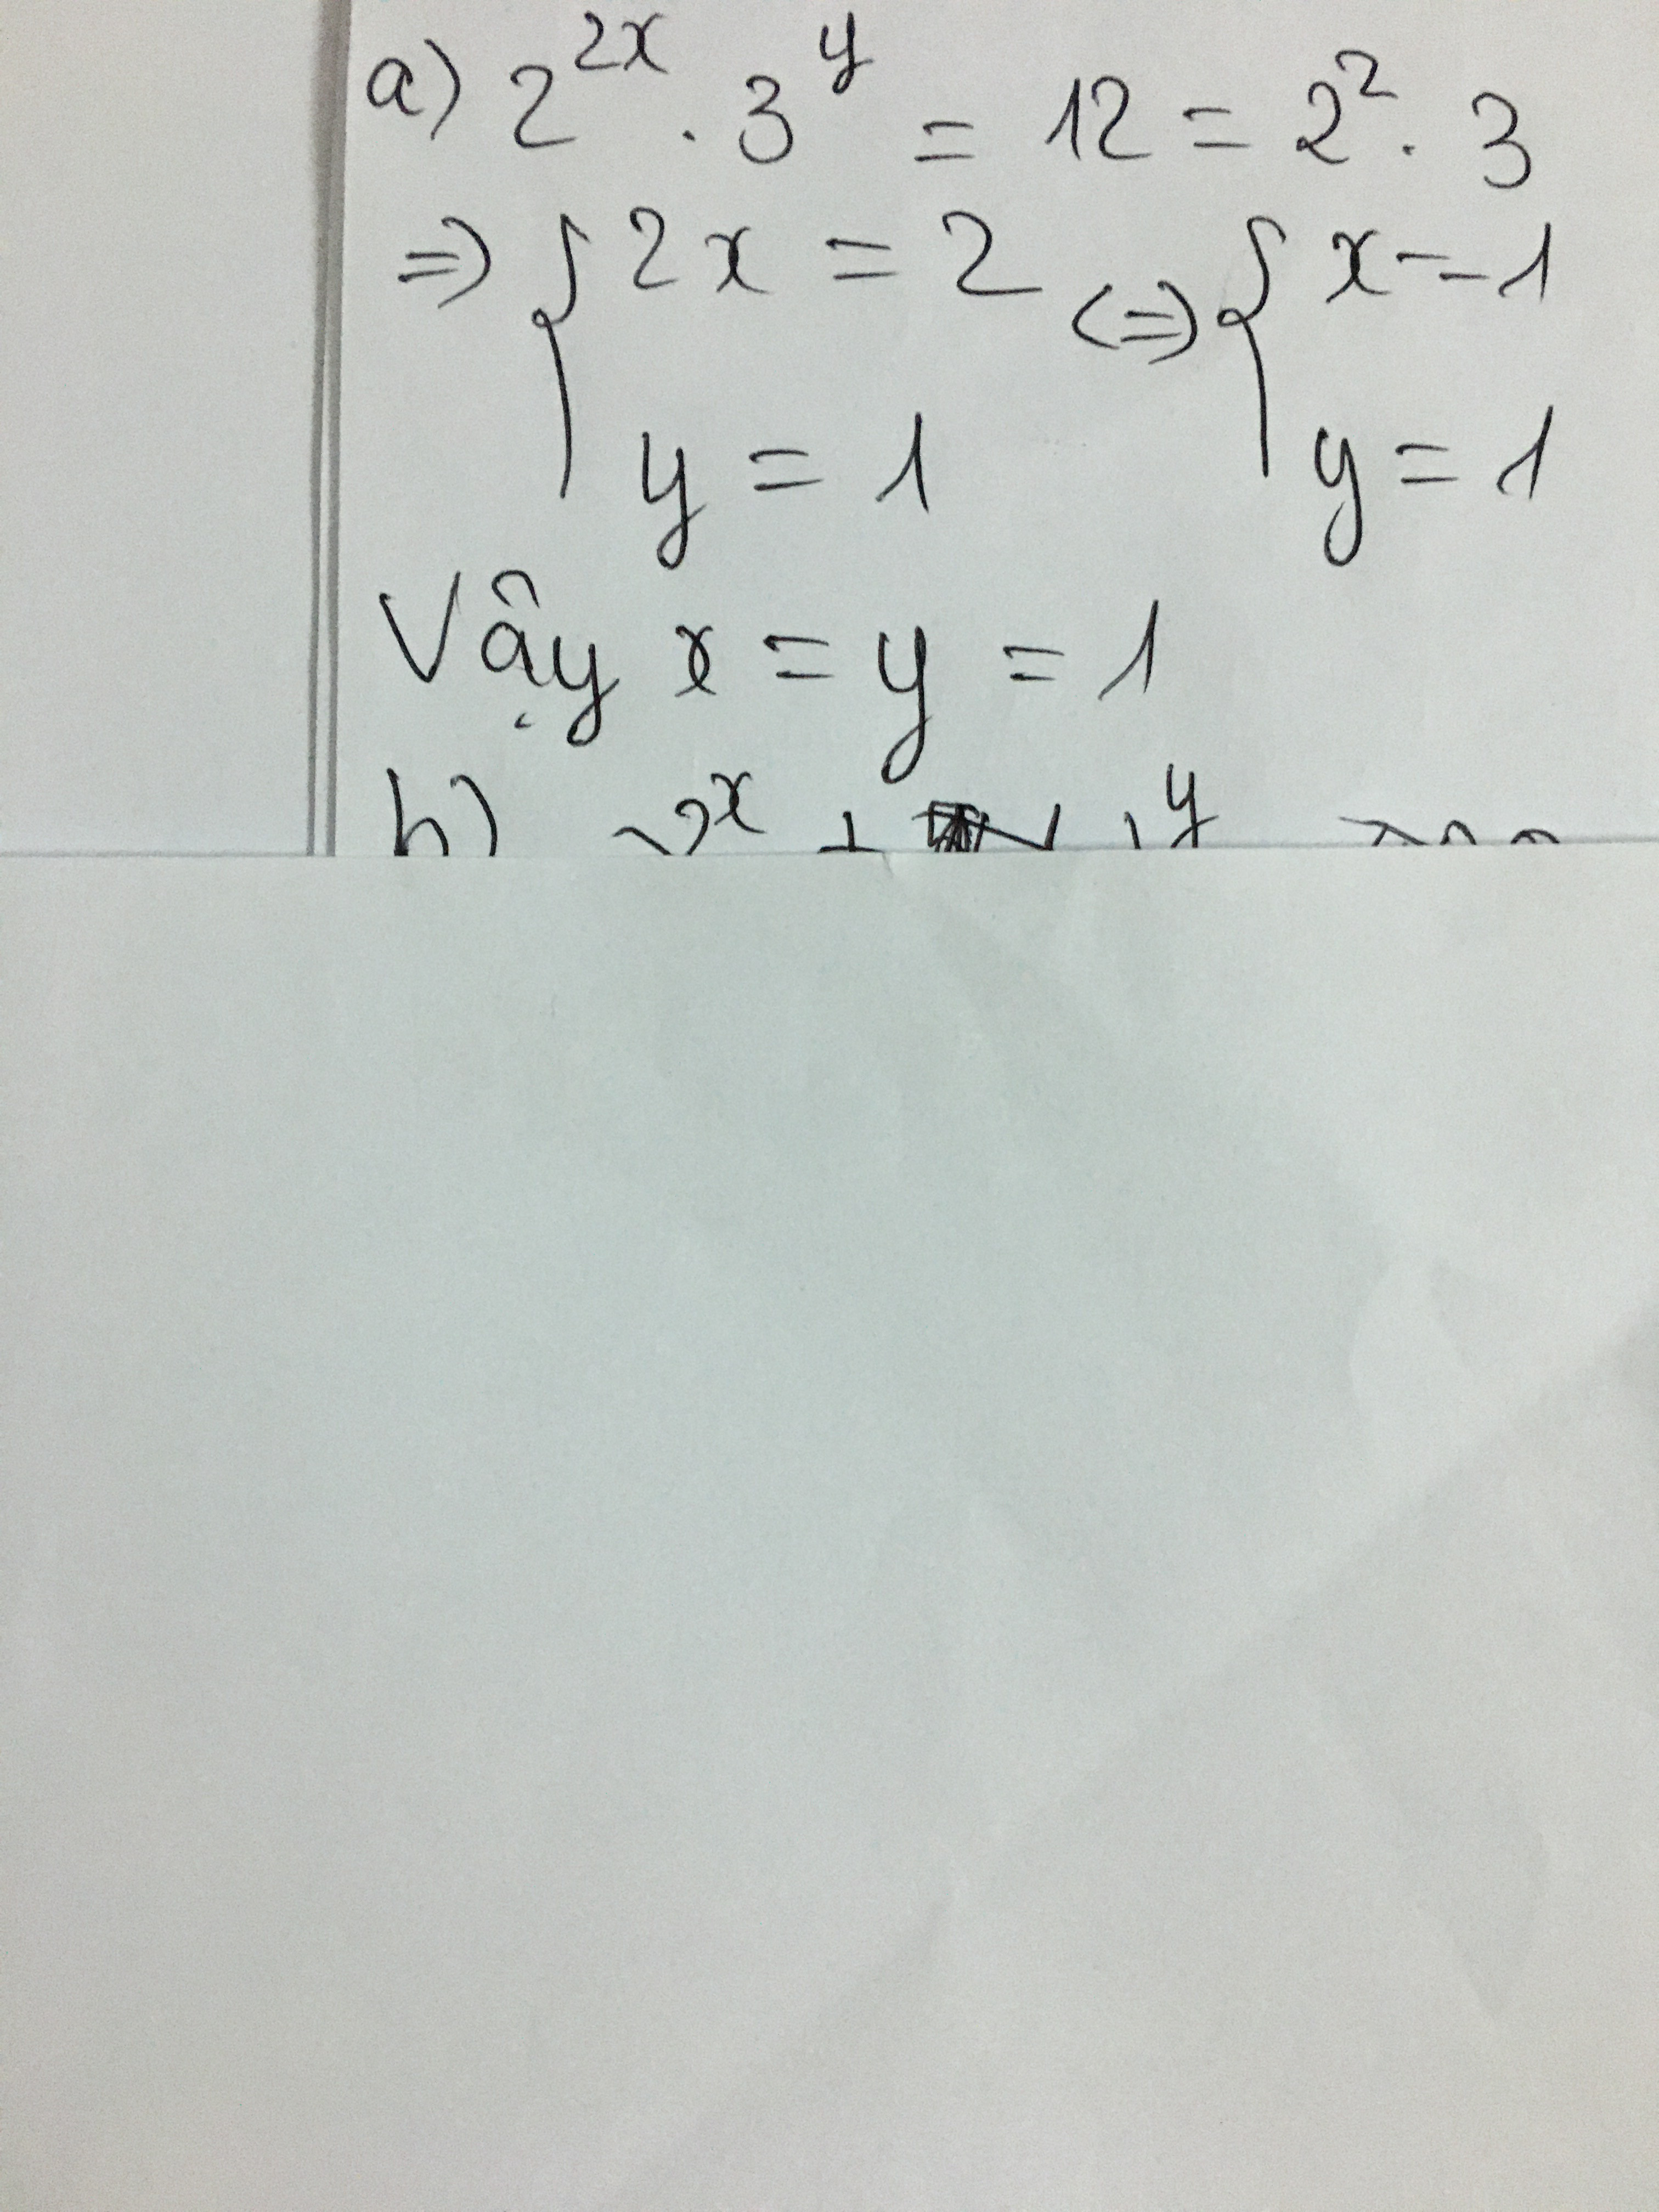 a) 2^{2x} . 3^y = 12 = 2^2 . 3
=> { 2x = 2 <=> { x = 1
y = 1 y = 1
Vậy x = y = 1
b)